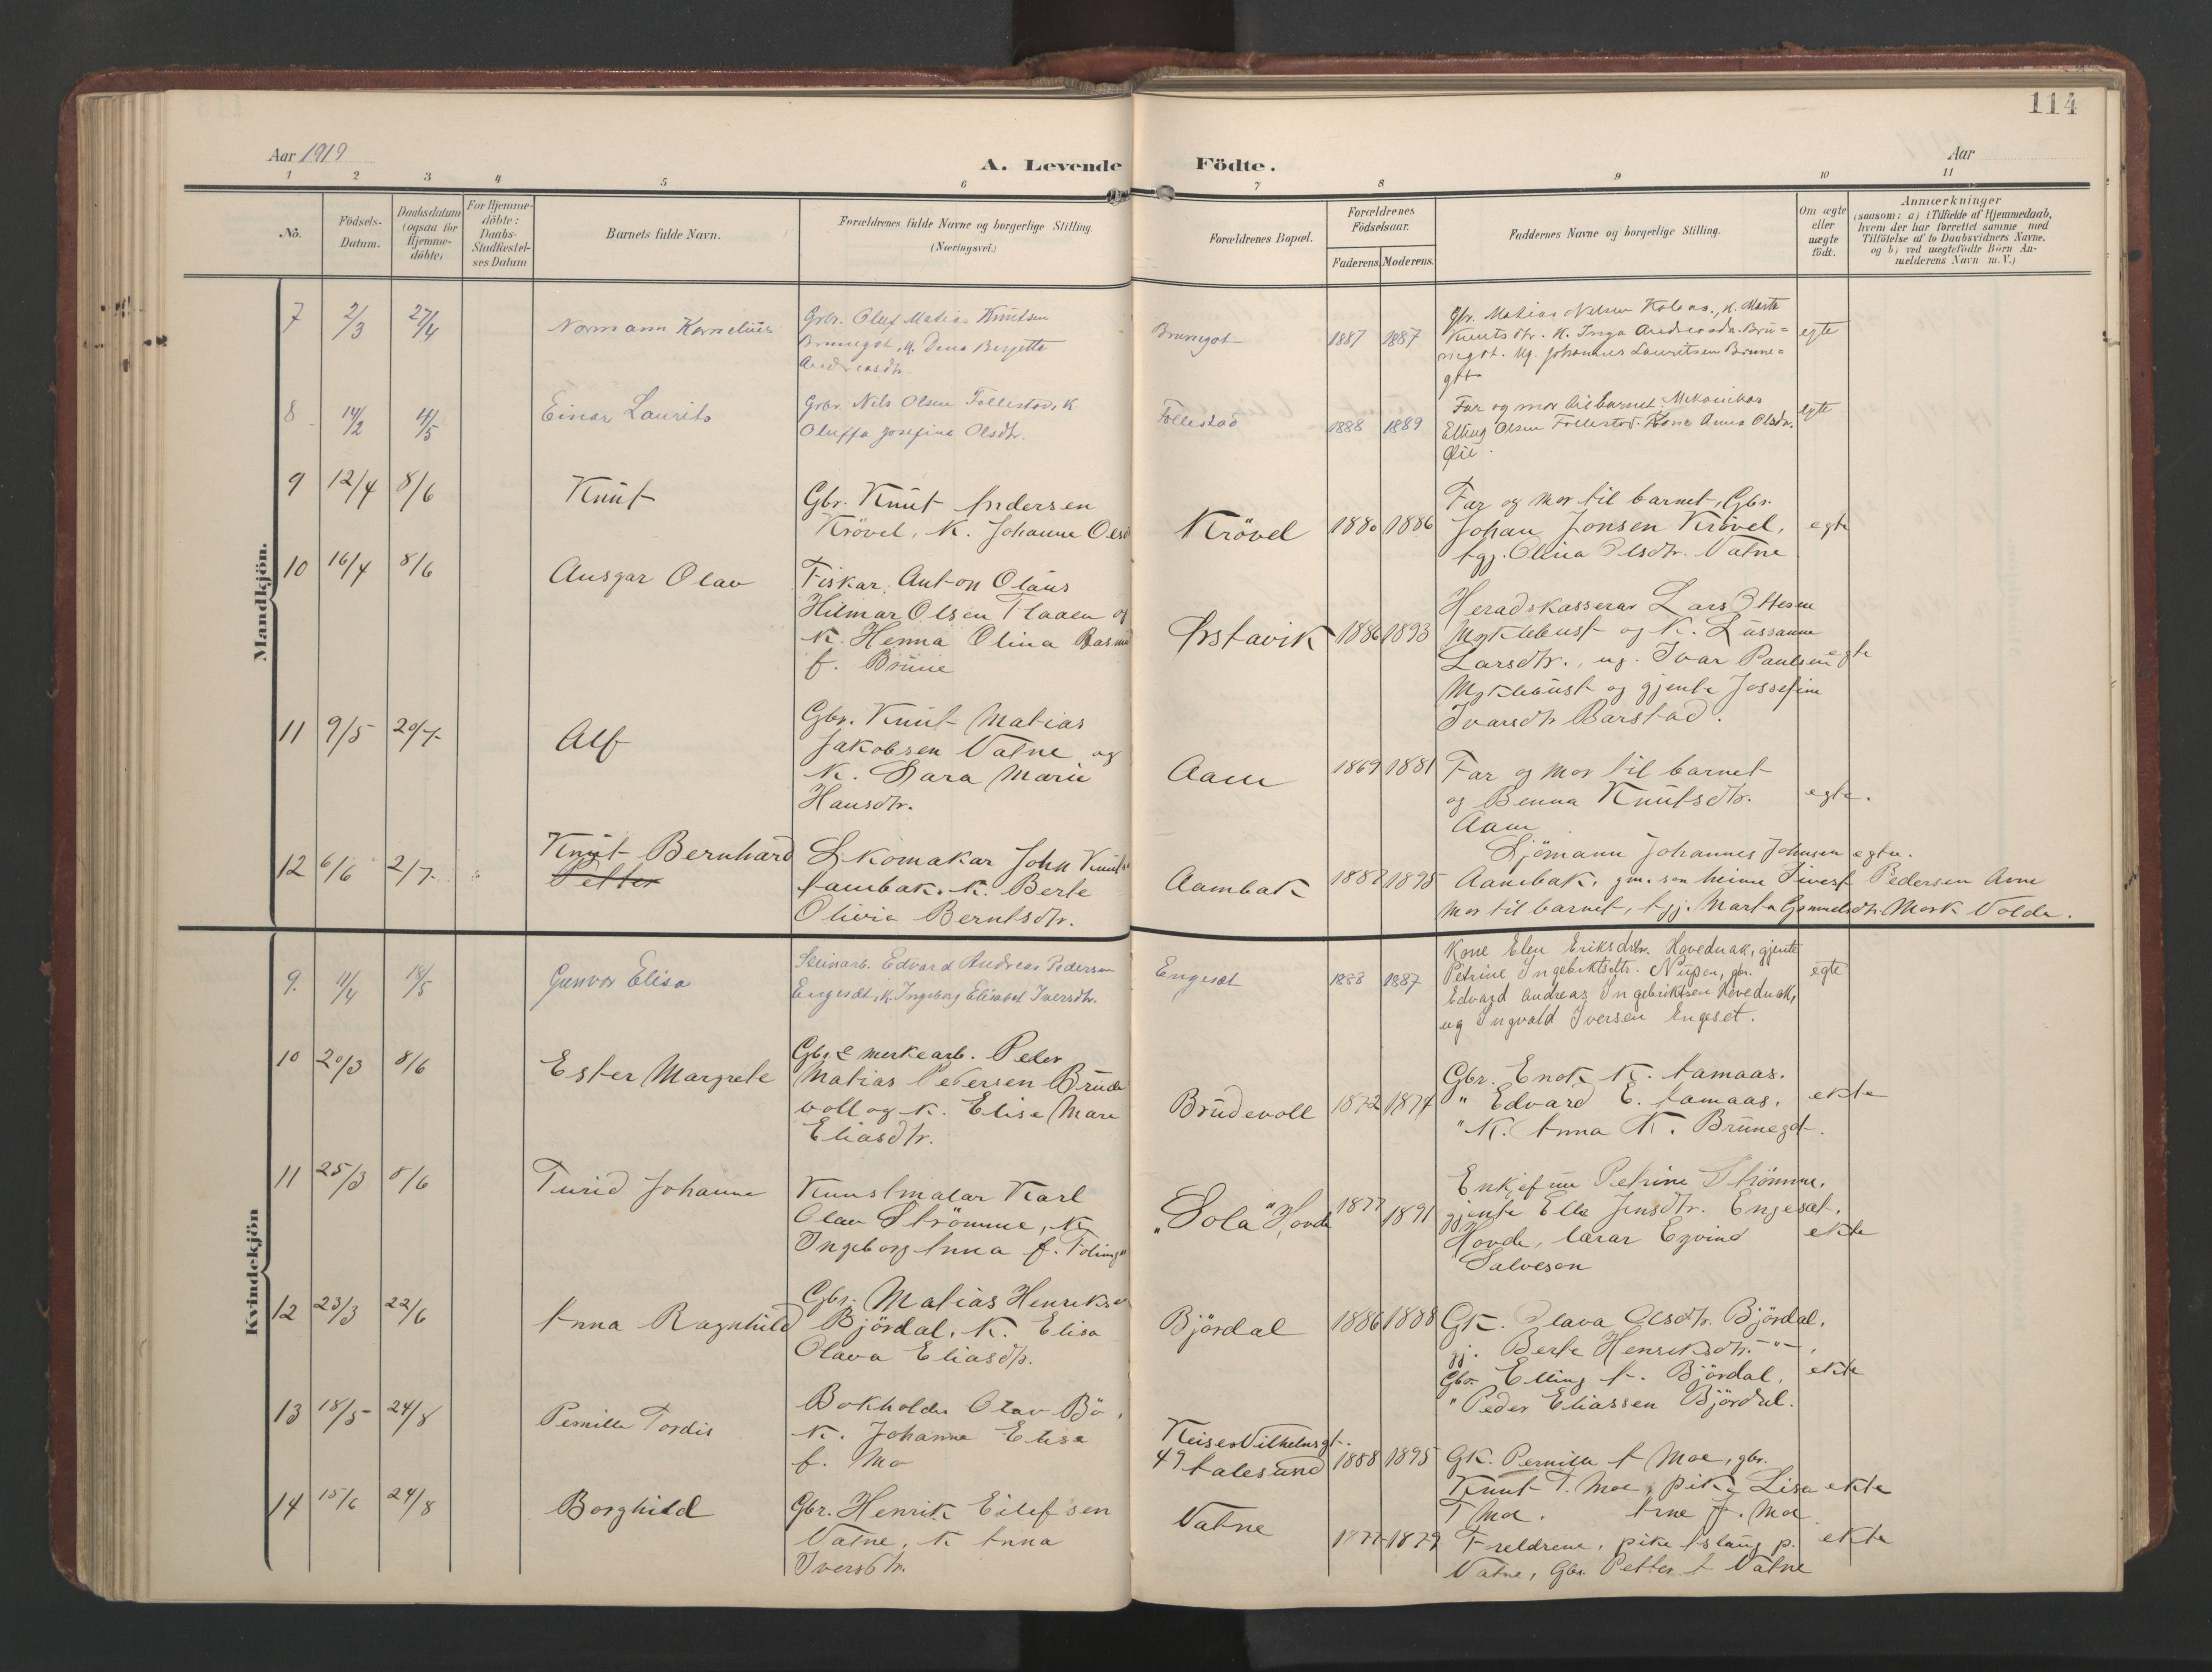 114
Aar 1919
A. Levende Födte.
Aar
1 2 3 4 5 6 7 8 9 10 11
No.
Födsels-
Datum.
Daabsdatum
(ogsaa for
Hjemme-
döbte)
For Hjemme-
döbte:
Daabs-
Stadfæstel-
ses Datum
Barnets fulde Navn.
Forældrenes fulde Navne og borgerlige Stilling.
(Næringsvei.)
Forældrenes Bopæl.
Forældrenes
Födselsaar.
Faderens.
Moderens.
Faddernes Navne og borgerlige Stilling.
Om ægte
eller
uægte
födt.
Anmærkninger
(saasom: a) i Tilfælde af Hjemmedaab,
hvem der har forrettet samme med
Tilföielse af to Daabsvidners Navne,
og b) ved uægtefödte Börn An-
melderens Navn m. V.)
Mandkjön.
7 2/3 27/4
Normann Kornelius
Gbr. Oluf Matias Knutsen
Brunegot, K. Dena Bergitte
Andreasdtr.
Brunegot
1887 1887
Gbr. Matias Nilsen Kolaas, K. Marte
Knutsdtr. K. Inga Andreasdr. Bru=
negot. Ug. Johannes Lauritsen Brune=
got
egte
8 14/2 4/5
Einar Laurits
Gbr. Nils Olsen Follestad, K
Oluffa Josefine Olsdtr.
Follestad
1888 1889
Far og mor til barnet. Mekanikar
Elling Olsen Follestad. Kone Anna Olsdtr.
Øie.
egte
9 12/4 8/6
Knut
Gbr. Knut Andersen
Krövel, K. Johanne Olsd
Krövel
1880 1886
Far og mor til barnet, Gbr.
Johan Jonsen Krövel,
tgj. Olina Olsdtr. Vatne
egte
10 16/4 8/6
Ansgar Olav
Fiskar Anton Olaus
Hilmar Olsen Flaaen og
K. Henna Olina Rasm
f. Brune
Ørstavik
1886 1893
Heradskasserar Lars Ottesen
Myklebust og K. Lussanne
Larsdtr., ug. Ivar Paulsen
Myklebust og gjente Jossefine
Ivarsdtr Barstad.
egte
11 9/5 20/7
Alf
Gbr. Knut Matias
Jakobsen Vatne og
K. Sara Marie
Hansdtr.
Aam
1869 1881
Far og mor til barnet
og Benna Knutsdtr.
Aam
egte.
12 6/6 2/7
Knut Bernhard
Petter
Skomakar John Knuts
Aambak. K. Berte
Olivia Berntsdtr.
Aambak
1887 1895
Sjömann Johannes Johnsen
Aambak, gm. son heime Sivert Pedersen Aam
Mor til barnet, tgj. Marta Gammelsdtr. Mork Volda.
egte.
Kvindekjön
9. 11/4 18/5
Gunvor Elisa
Steinarb. Edvard Andreas Pedersen
Engeset, K. Ingeborg Elisabet Iversdtr.
Engeset
1888 1887
Kone Elen Eriksdtr. Hovednak, gjente
Petrine Ingebriktsdtr. Nupen, gbr.
Edvard Andreas Ingebriktsen Hovednak,
ug Ingvald Iversen Engeset.
egte
10 20/3 8/6
Ester Margrete
Gbr. & merkearb. Peder
Matias Petersen Brude
voll og K. Elise Mare
Eliasdtr.
Brudevoll
1872 1874
Gbr. Enok K. Aamaas.
" Edvard E. Aamaas.
" K. Anna K. Brunegot.
ekte
11 25/3 8/6
Turid Johanne
Kunstmalar Karl
Olav Strömme, K
Ingeborg Anna f.
"Sola" Hovde
1877 1891
Enkjefru Petrine Strömme,
gjente Elle Jensdtr. Engeset.
Hovde, lærar Eyvind
Salveson
ekte
12 23/3 22/6
Anna Ragnhild
Gbr. Matias Henriksen
Björdal. K. Elisa
Olava Eliasdtr.
Björdal
1886 1888
GK. Olava Olsdtr. Björdal.
gj. Berte Henriksdtr. -"-
Gbr. Elling A. Björdal,
" Peder Eliassen Björdal.
ekte
13 18/5 24/8
Pernille Tordis
Bokholder Olav Bö,
K. Johanne Elise
f. Mo
Keiser Vilhelmsgt.
49 Aalesund
1888 1895
GK. Pernille A Moe, gbr.
Knut T. Moe, pike Lisa
T Moe. Arne J. Moe
ekte
14 15/6 24/8
Borghild
Gbr. Henrik Eilefsen
Vatne, K Anna
Iversdtr.
Vatne
1877 1879
Foreldrene, pike Aslaug p.
Vatne, Gbr. Petter A Vatne
ekte